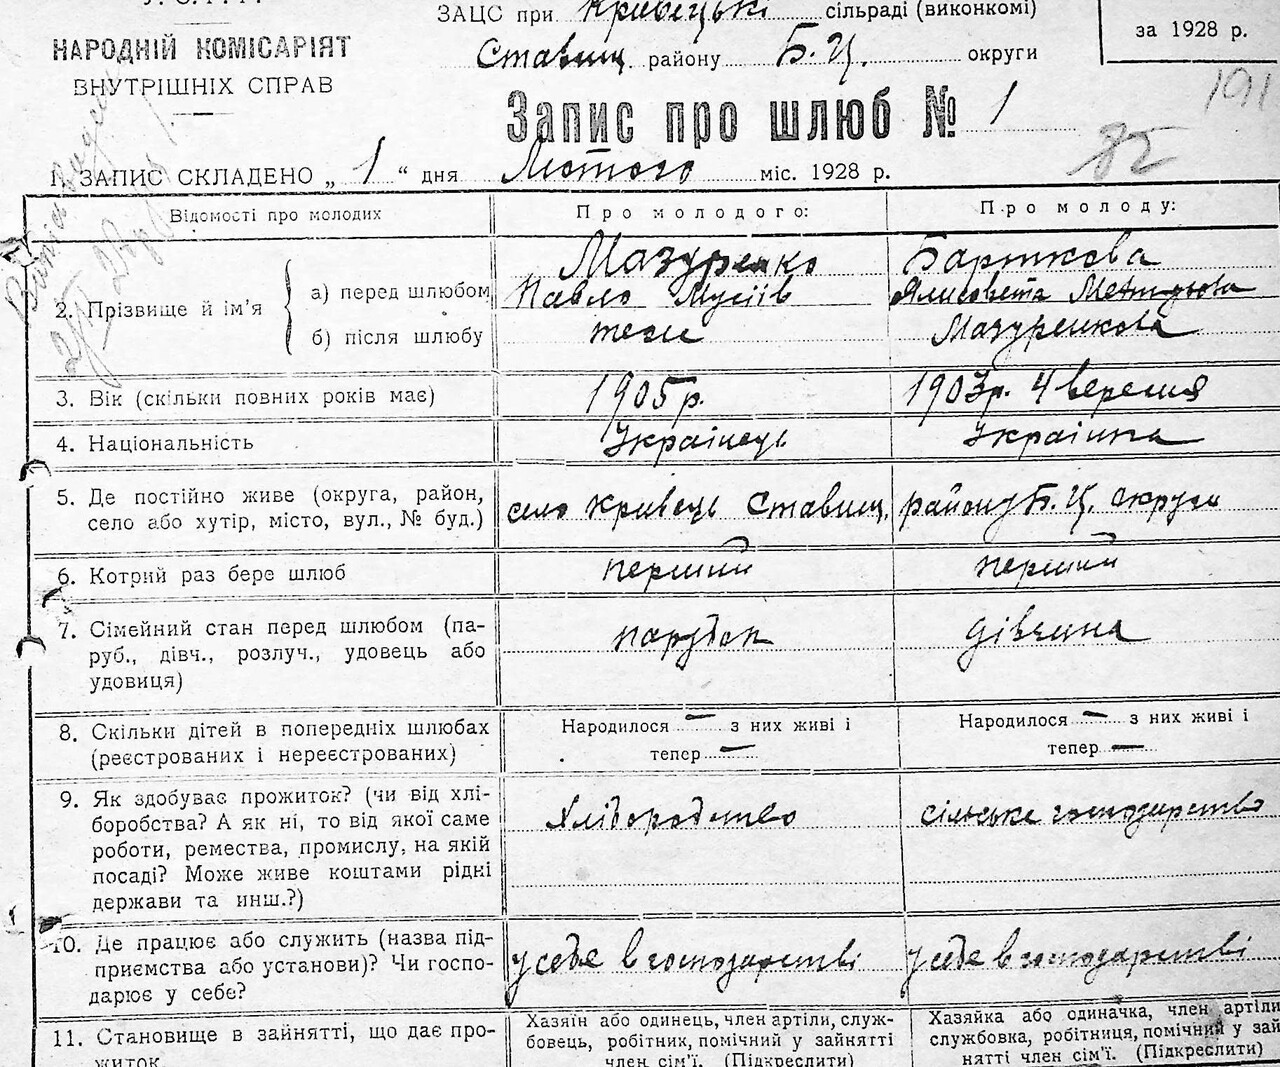 ЗАЦС при Кривецькі сільраді (виконкомі)
НАРОДНІЙ КОМІСАРІЯТ
ВНУТРІШНІХ СПРАВ
Ставищ. району Б. Ц. округи
за 1928 р.
191
Запис про шлюб № 1
85
1. ЗАПИС СКЛАДЕНО „ 1 “ дня Лютого міс. 1928 р.
Відомості про молодих
Про молодого:
Про молоду:
2. Прізвище й ім’я
а) перед шлюбом
Мазуренко
Павло Мусіів
Барткова
Ялисовета
б) після шлюбу
теж
Мазуренкова
3. Вік (скільки повних років має)
1905 р.
1903 р. 4 вересня
4. Національність
Українець
Українка
5. Де постійно живе (округа, район,
село або хутір, місто, вул., № буд.)
село Кривець Ставищ. району Б. Ц. округи
6. Котрий раз бере шлюб
перший
перший
7. Сімейний стан перед шлюбом (па-
руб., дівч., розлуч., удовець або
удовиця)
парубок
дівчина
8. Скільки дітей в попередніх шлюбах
(реєстрованих і нереєстрованих)
Народилося — з них живі і
тепер —
Народилося — з них живі і
тепер —
9. Як здобуває прожиток? (чи від хлі-
боробства? А як ні, то від якої саме
роботи, ремества, промислу, на якій
посаді? Може живе коштами рідні
держави та инш.?)
Хліборобство
сільське господарство
10. Де працює або служить (назва під-
приємства або установи)? Чи госпо-
дарює у себе?
у себе в господарстві
у себе в господарстві
11. Становище в зайнятті, що дає про-
житок.
Хазяїн або одинець, член артіли, служ-
бовець, робітник, помічний у зайнятті
член сім’ї. (Підкреслити)
Хазяйка або одиначка, член артіли
службовка, робітниця, помічний у зай
нятті член сім’ї. (Підкреслити)